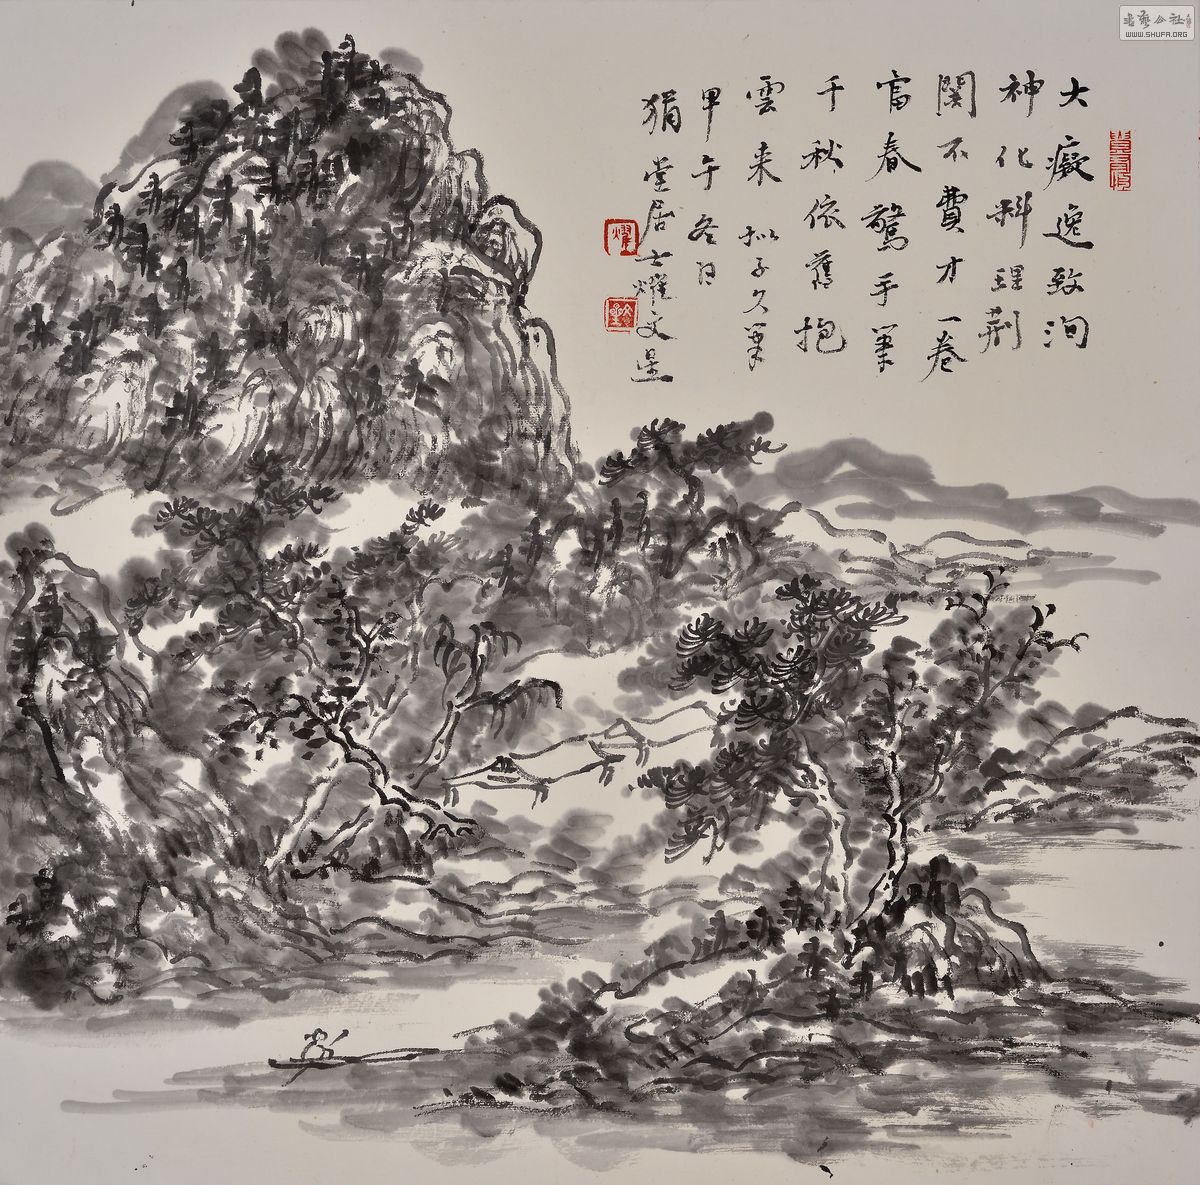 大癡逸致洵
神化料理荊
關不費才一卷
富春驚手筆
千秋依舊抱
雲来拟子久筆
甲午冬日
狷堂居士耀文星
耀
书艺公社
WWW.SHUFA.ORG